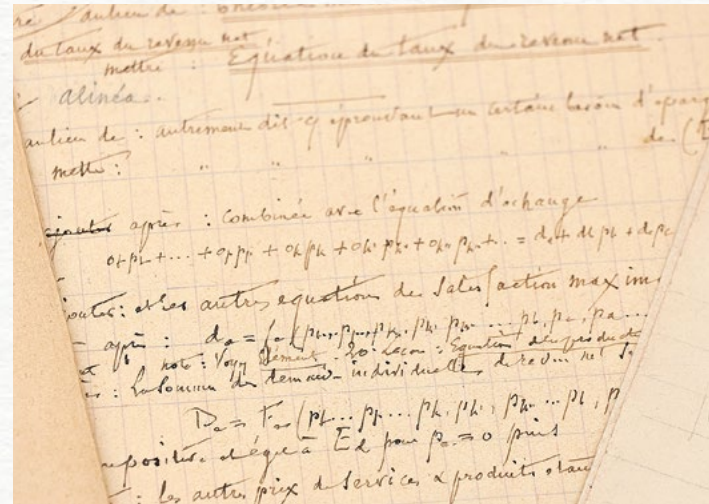 au lieu de :
du taux du revenu net
mettre : Equation du taux du revenu net.
alinéa.
au lieu de : autrement dit éprouvant un certain besoin d'éparg
mettre : " " " " de (
ajouter après : combinée avec l'équation d'échange
otpt + ... + oppp + okpk + ok'pk' + ok''pk'' + ... = da + db pb + dc pc
et les autres equations de satisfaction maxim
après : de = fe (pt...pp...pk, pk', pk''... pb, pc, pd ...
note : Voyez Elément. 20e Leçon : Equation des produits
: La somme des demandes individuelles de revenu net
De = Fe (pt... pp... pk, pk', pk''... pb, p
positive et égale à Ed pour pe = 0 puis
: les autres prix de services & produits étant